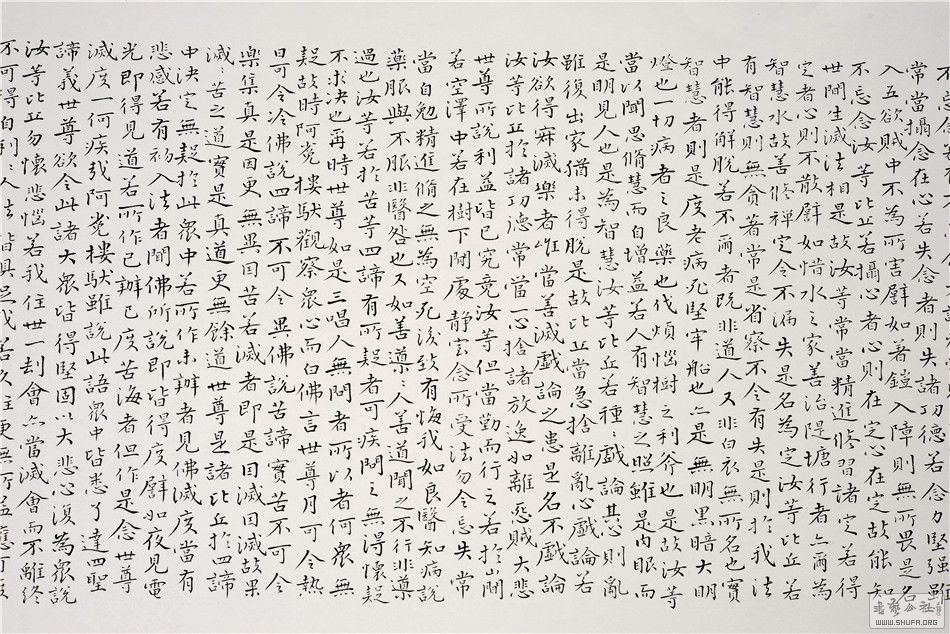 常當攝念在心若失念者則失諸功德若念力堅強雖
入五欲賊中不為所害譬如著鎧入陣則無所畏是名
不忘念汝等比丘若攝心者心則在定心在定故能知
世間生滅法相是故汝等常當精進修習諸定若得
定者心則不散譬如惜水之家善治隄塘行者亦爾為
智慧水故善修禪定令不漏失是名為定汝等比丘若
有智慧則無貪著常自省察不令有失是則於我法
中能得解脫若不爾者既非道人又非白衣無所名也實
智慧者則是度老病死堅牢船也亦是無明黑暗大明
燈也一切病者之良藥也伐煩惱樹之利斧也是故汝等
當以聞思脩慧而自增益若人有智慧之照雖是肉眼而
是明見人也是為智慧汝等比丘若種〻戲論其心則亂
雖復出家猶未得脫是故比丘當急捨離亂心戲論若
汝欲得寂滅樂者唯當善滅戲論之患是名不戲論
汝等比丘於諸功德常當一心捨諸放逸如離惡賊大悲
世尊所說利益皆已究竟汝等但當勤而行之若於山間
若空澤中若在樹下閑處靜室念所受法勿令忘失常
當自勉精進脩之無為空死後致有悔我如良醫知病說
藥服與不服非醫咎也又如善導〻人善道聞之不行非導
過也汝等若於苦等四諦有所疑者可疾問之無得懷疑
不求決也爾時世尊如是三唱人無問者所以者何眾無
疑故時阿㝹樓馱觀察眾心而白佛言世尊月可令熱
日可令冷佛說四諦不可令異佛說苦諦實苦不可令
樂集真是因更無異因苦若滅者即是因滅因滅故果
滅〻苦之道實是真道更無餘道世尊是諸比丘於四諦
中決定無疑於此眾中若所作未辦者見佛滅度當有
悲感若有初入法者聞佛所說即皆得度譬如夜見電
光即得見道若所作已辦已度苦海者但作是念世尊
滅度一何疾哉阿㝹樓馱雖說此語眾中皆悉了達四聖
諦義世尊欲令此諸大眾皆得堅固以大悲心復為眾說
汝等比丘勿懷悲惱若我住世一劫會亦當滅會而不離終
不可得自利〻人法皆具足我若久住更無所益應可度
WWW.SHUFA.ORG